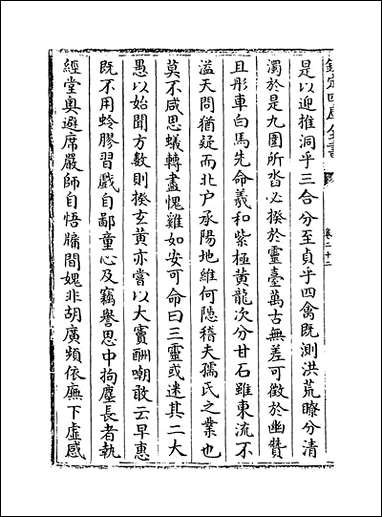 欽定四庫全書
卷二十二
是以迎推洞乎三合分至貞乎四禽既測洪荒瞭分清
濁於是九圍所沓必揆於靈臺萬古無差可徵於幽贊
且彤車白馬先命羲和紫極黄龍次分甘石雖東流不
溢天問猶疑而北户承陽地維何隠稽夫儒氏之業也
莫不咸思蟻轉盡愧雞如安可命曰三靈或迷其二大
愚以始聞方數則揆玄黄亦嘗以大竇酬嘲敢云早惠
既不用蛉膠習戲自鄙童心及竊譽思中拘塵長者執
經堂奥遊席嚴師自悟牆間媿非胡廣頻依廡下虛感